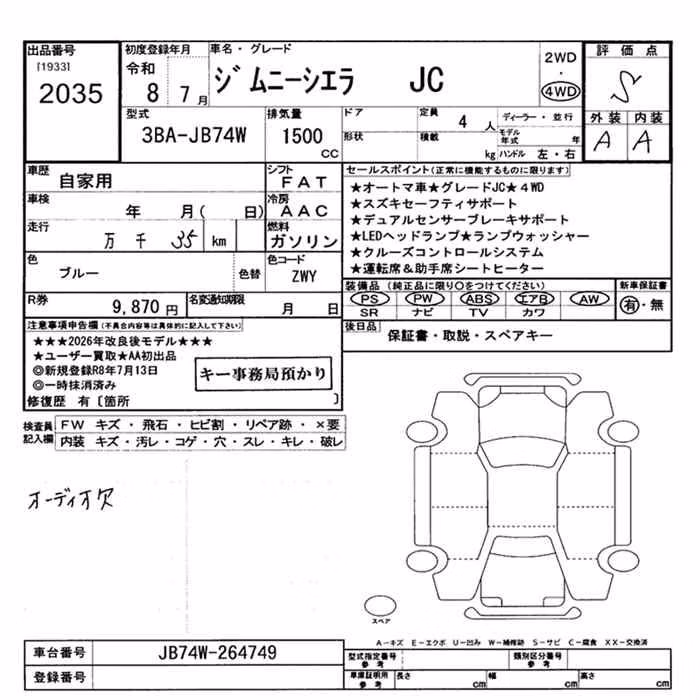 出品番号 [1933] 2035
初度登録年月 令和 8年 7月
車名・グレード ジムニーシエラ JC
2WD・4WD
評価点 S
外装 A 内装 A
型式 3BA-JB74W
排気量 1500 CC
ドア 形状
定員 4 人 積載 kg
ディーラー・並行
モデル年式 年
ハンドル 左・右
車歴 自家用
シフト FAT
車検 年 月( 日)
冷房 AAC
走行 万 千 35 km
燃料 ガソリン
色 ブルー 色替
色コード ZWY
R券 9,870 円
名変通知期限 月 日
セールスポイント(正常に機能するものに限ります)
★オートマ車★グレードJC★4WD
★スズキセーフティサポート
★デュアルセンサーブレーキサポート
★LEDヘッドランプ★ランプウォッシャー
★クルーズコントロールシステム
★運転席&助手席シートヒーター
装備品(純正品に限り○をつけてください)
PS PW ABS エアB AW
SR ナビ TV カワ
新車保証書 有・無
後日品 保証書・取説・スペアキー
注意事項申告欄(不具合内容等は具体的に記入して下さい)
★★★2026年改良後モデル★★★
★ユーザー買取★AA初出品
◎新規登録R8年7月13日
◎一時抹消済み
キー事務局預かり
修復歴 有〔箇所 〕
検査員記入欄
FW キズ・飛石・ヒビ割・リペア跡・×要
内装 キズ・汚レ・コゲ・穴・スレ・キレ・破レ
オーディオ欠
スペア
A-キズ E-エクボ U-凹み W-補修跡 S-サビ C-腐食 XX-交換済
車台番号 JB74W-264749
登録番号
型式指定番号 参考
類別区分番号 参考
車庫証明用 参考 長さ cm 幅 cm 高さ cm